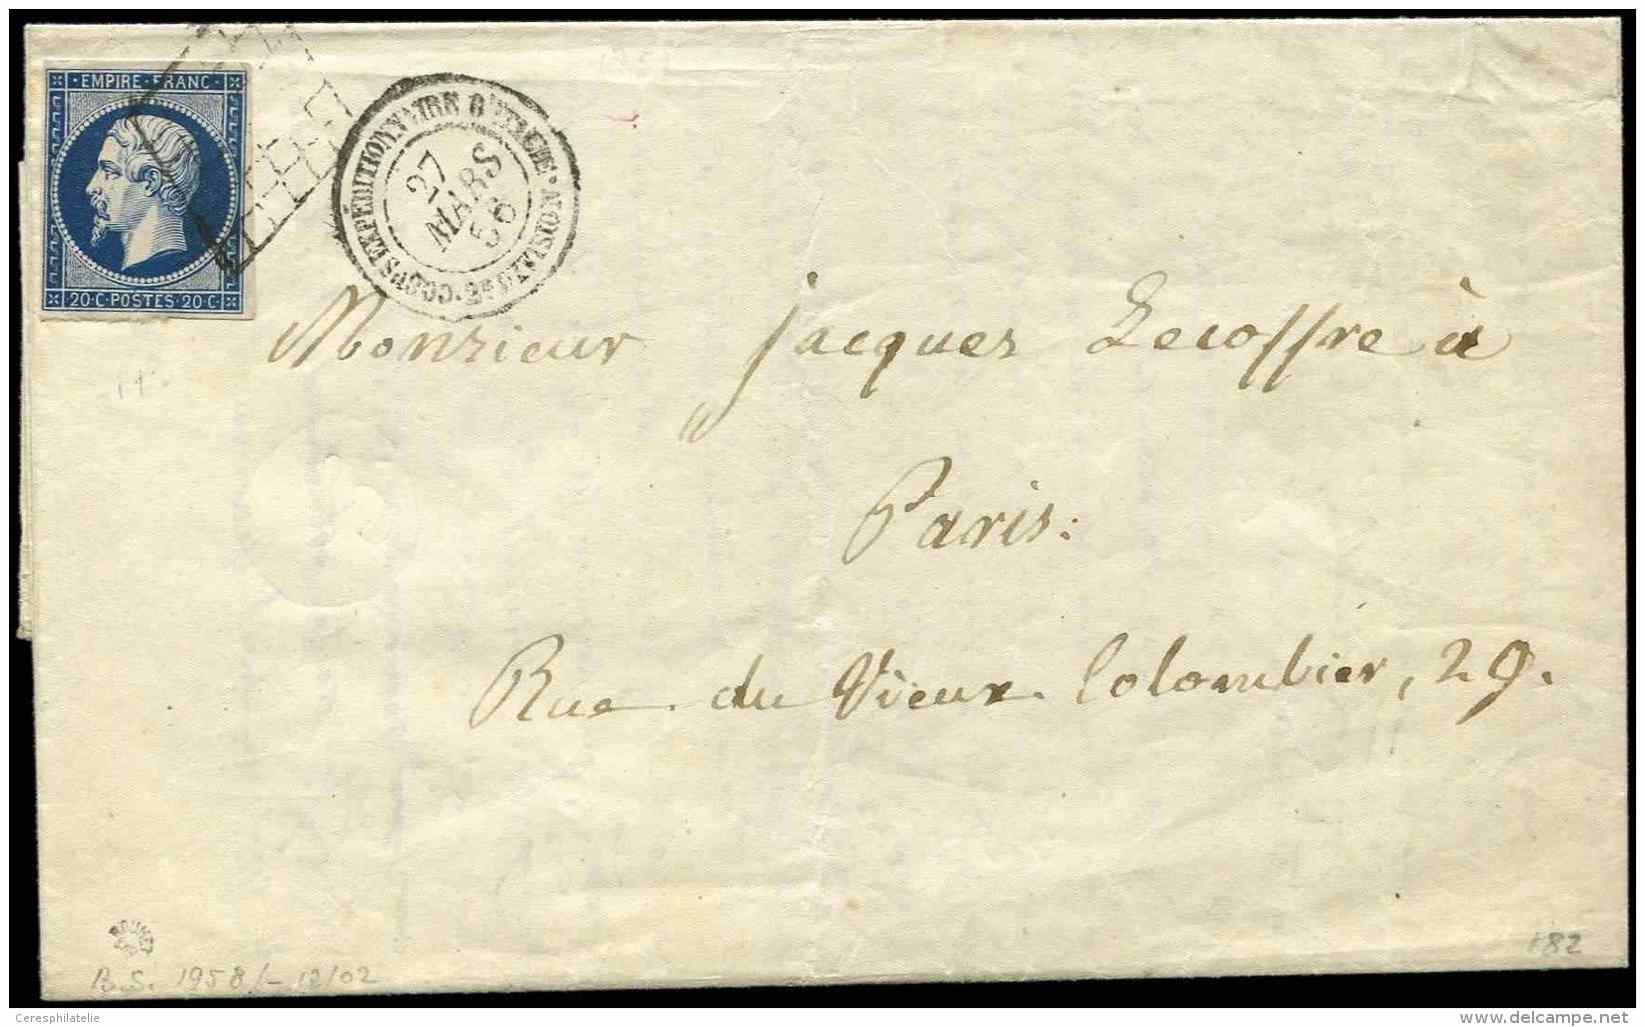 EMPIRE·FRANC·
20·C·POSTES·20·C·
CORPS EXPÉDITIONNAIRE D'ITALIE
27
MARS
56
Monsieur Jacques Lecoffre à
Paris:
Rue du Vieux Colombier, 29.
182
B.S. 1958/- 12/02
Ceresphilatelie
www.delcampe.net